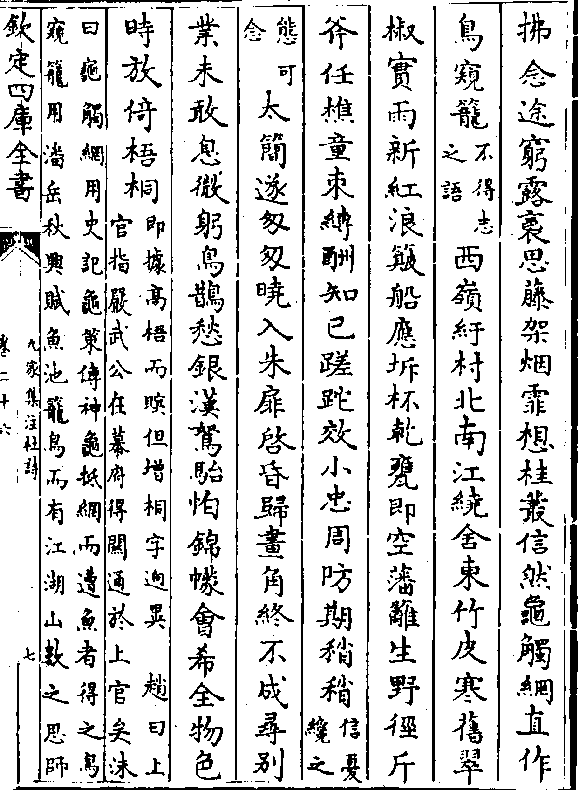 拂念途窮露裛思藤架烟霏想桂叢信然龜觸網直作
鳥窺籠不得志
之語西嶺紆村北南江繞舍東竹皮寒舊翠
椒實雨新紅浪簸船應坼杯乾甕即空藩籬生野徑斤
斧任樵童束縛酬知己蹉跎效小忠周防期稍稍信憂
纔之
態可
念太簡遂匆匆曉入朱扉啓昏歸畫角終不成尋别
業未敢息微躬烏鵲愁銀漢駑駘怕錦幪會希全物色
時放倚梧桐即據髙梧而暝但增桐字逈異 趙曰上
官指嚴武公在幕府得關通於上官矣沬
曰龜觸網用史記龜策傳神龜抵網而遭魚者得之鳥
窺籠用潘岳秋興賦魚池籠鳥而有江湖山藪之思師
欽定四庫全書
九家集注杜詩
卷二十六
七